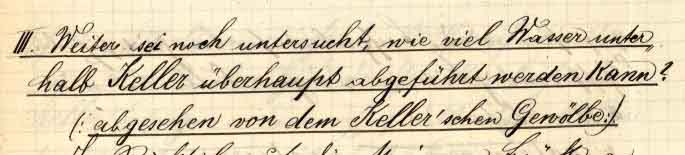 III. Weiter sei noch untersucht, wie viel Wasser unter„
halb Keller überhaupt abgeführt werden kann?
(: abgesehen von dem Keller'schen Gewölbe:)